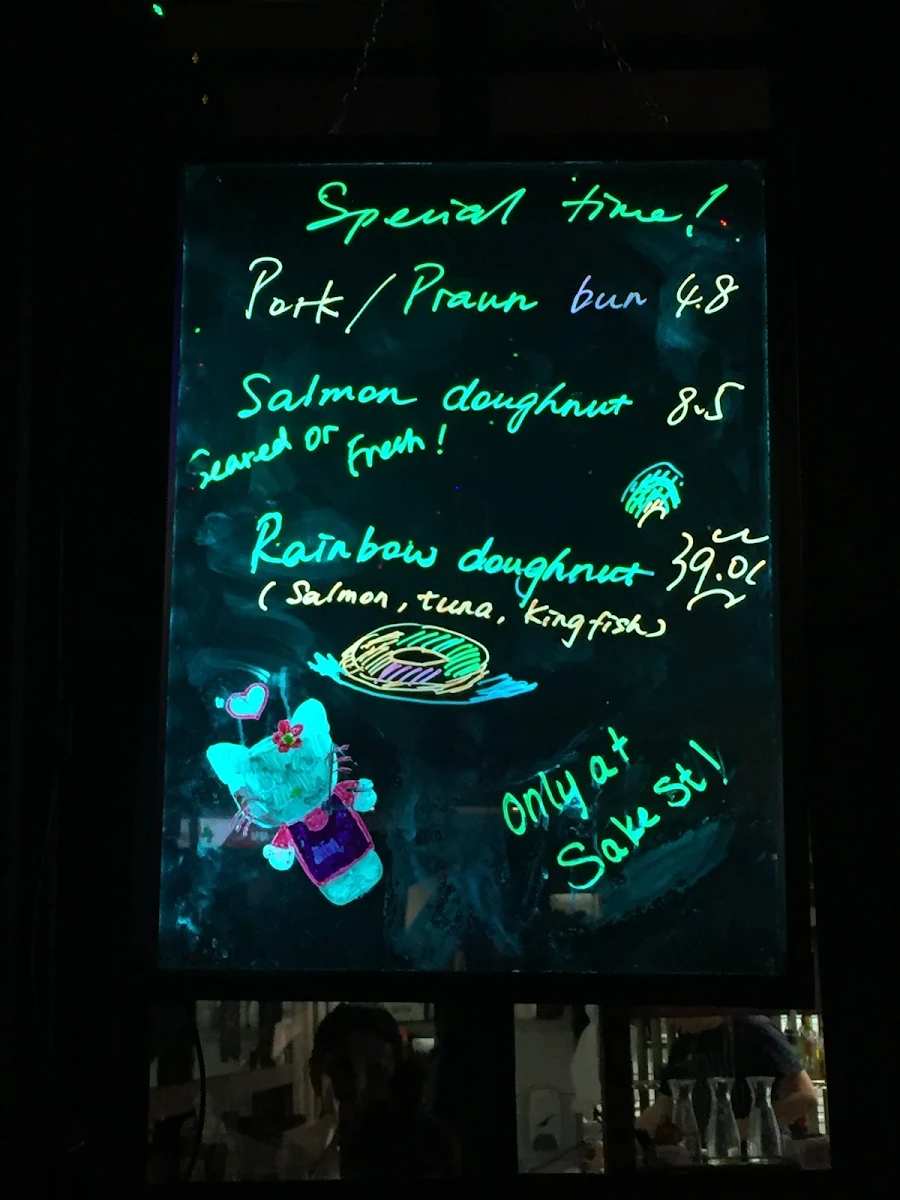 Special time!
Pork / Praun bun 4.8
Salmon doughnut 8.5
Seared or Fresh!
Rainbow doughnut 9.0
(Salmon, tuna, kingfish)
only at
Sake St!